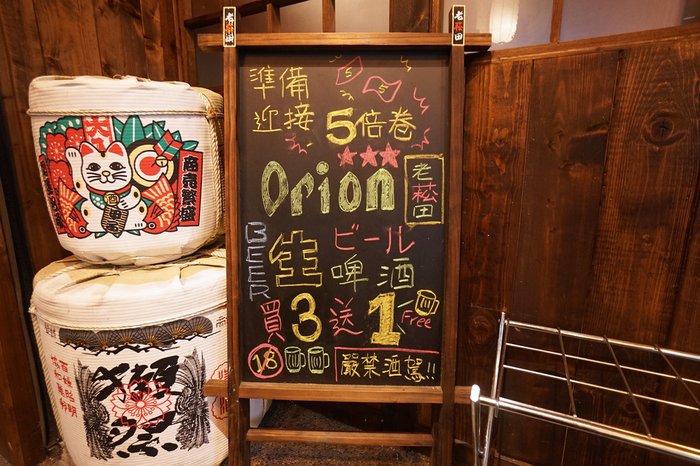 老松田
老松田
準備
迎接 5倍卷
5
5
Orion
老松田
BEER
生
ビール
啤酒
買3送1
Free
1/8
嚴禁酒駕!!
商売繁盛
百薬之長